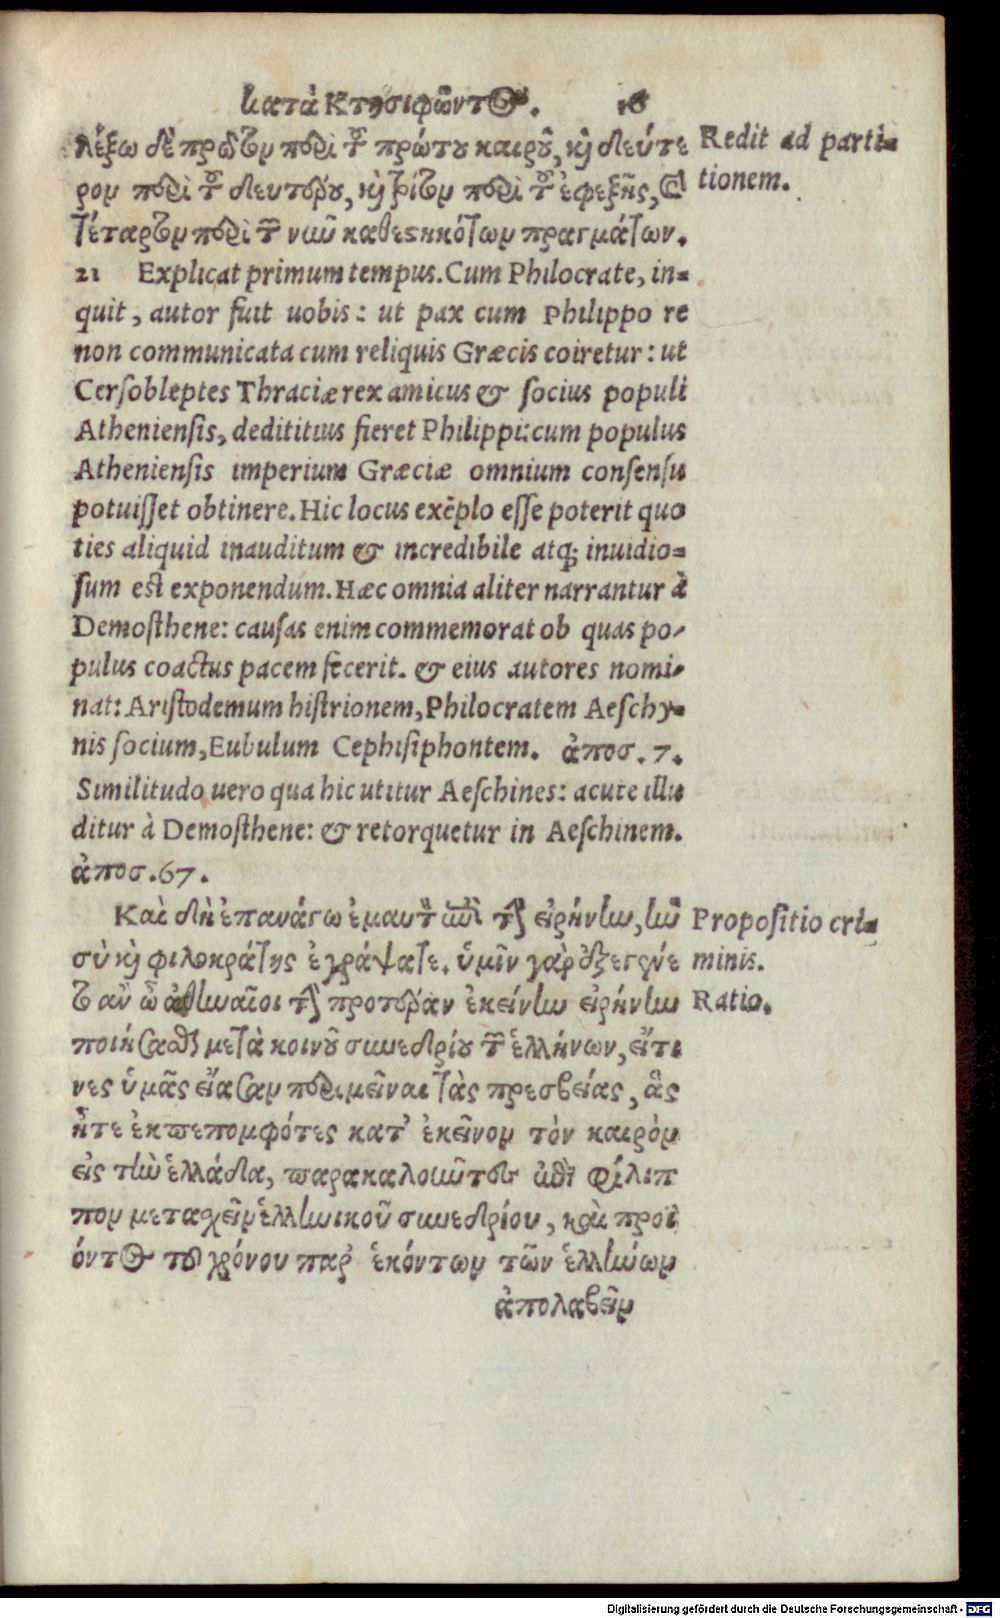 κατὰ Κτησιφῶντος.
λέξω δὲ πρῶτον περὶ τοῦ πρώτου καιροῦ, καὶ δεύτε
ρον περὶ τοῦ δευτέρου, καὶ τρίτον περὶ τοῦ ἐφεξῆς, καὶ
τέταρτον περὶ τῶν νῦν καθεστηκότων πραγμάτων.
Redit ad parti=
tionem.
21 Explicat primum tempus. Cum Philocrate, in=
quit, autor fuit uobis: ut pax cum Philippo re
non communicata cum reliquis Græcis coiretur: ut
Cersobleptes Thraciæ rex amicus & socius populi
Atheniensis, dedititius fieret Philippi: cum populus
Atheniensis imperium Græciæ omnium consensu
potuisset obtinere. Hic locus exẽplo esse poterit quo
ties aliquid inauditum & incredibile atq; inuidio=
sum est exponendum. Hæc omnia aliter narrantur à
Demosthene: causas enim commemorat ob quas po-
pulus coactus pacem fecerit. & eius autores nomi-
nat: Aristodemum histrionem, Philocratem Aeschy=
nis socium, Eubulum Cephisiphontem. ἀποσ. 7.
Similitudo uero qua hic utitur Aeschines: acute illu
ditur à Demosthene: & retorquetur in Aeschinem.
ἀποσ. 67.
Καὶ δὴ ἐπανάγω ἐμαυτὸν ἐπὶ τὴν εἰρήνην, ἣν
σὺ καὶ φιλοκράτης ἐγράψατε. ὑμῖν γὰρ ἐξεγένε
το ἂν ὦ ἀθηναῖοι τὴν προτέραν ἐκείνην εἰρήνην
ποιήσασθαι μετὰ κοινοῦ συνεδρίου τῶν ἑλλήνων, εἴ τι
νες ὑμᾶς εἴασαν περιμεῖναι τὰς πρεσβείας, ἃς
ἦτε ἐκπεπομφότες κατ' ἐκεῖνον τὸν καιρὸν
εἰς τὴν ἑλλάδα, παρακαλοῦντες ἐπὶ φίλιπ
πον μετασχεῖν ἑλληνικοῦ συνεδρίου, καὶ προϊ
όντος τοῦ χρόνου παρ' ἑκόντων τῶν ἑλλήνων
ἀπολαβεῖν
Propositio cri=
minis.
Ratio.
Digitalisierung gefördert durch die Deutsche Forschungsgemeinschaft - DFG